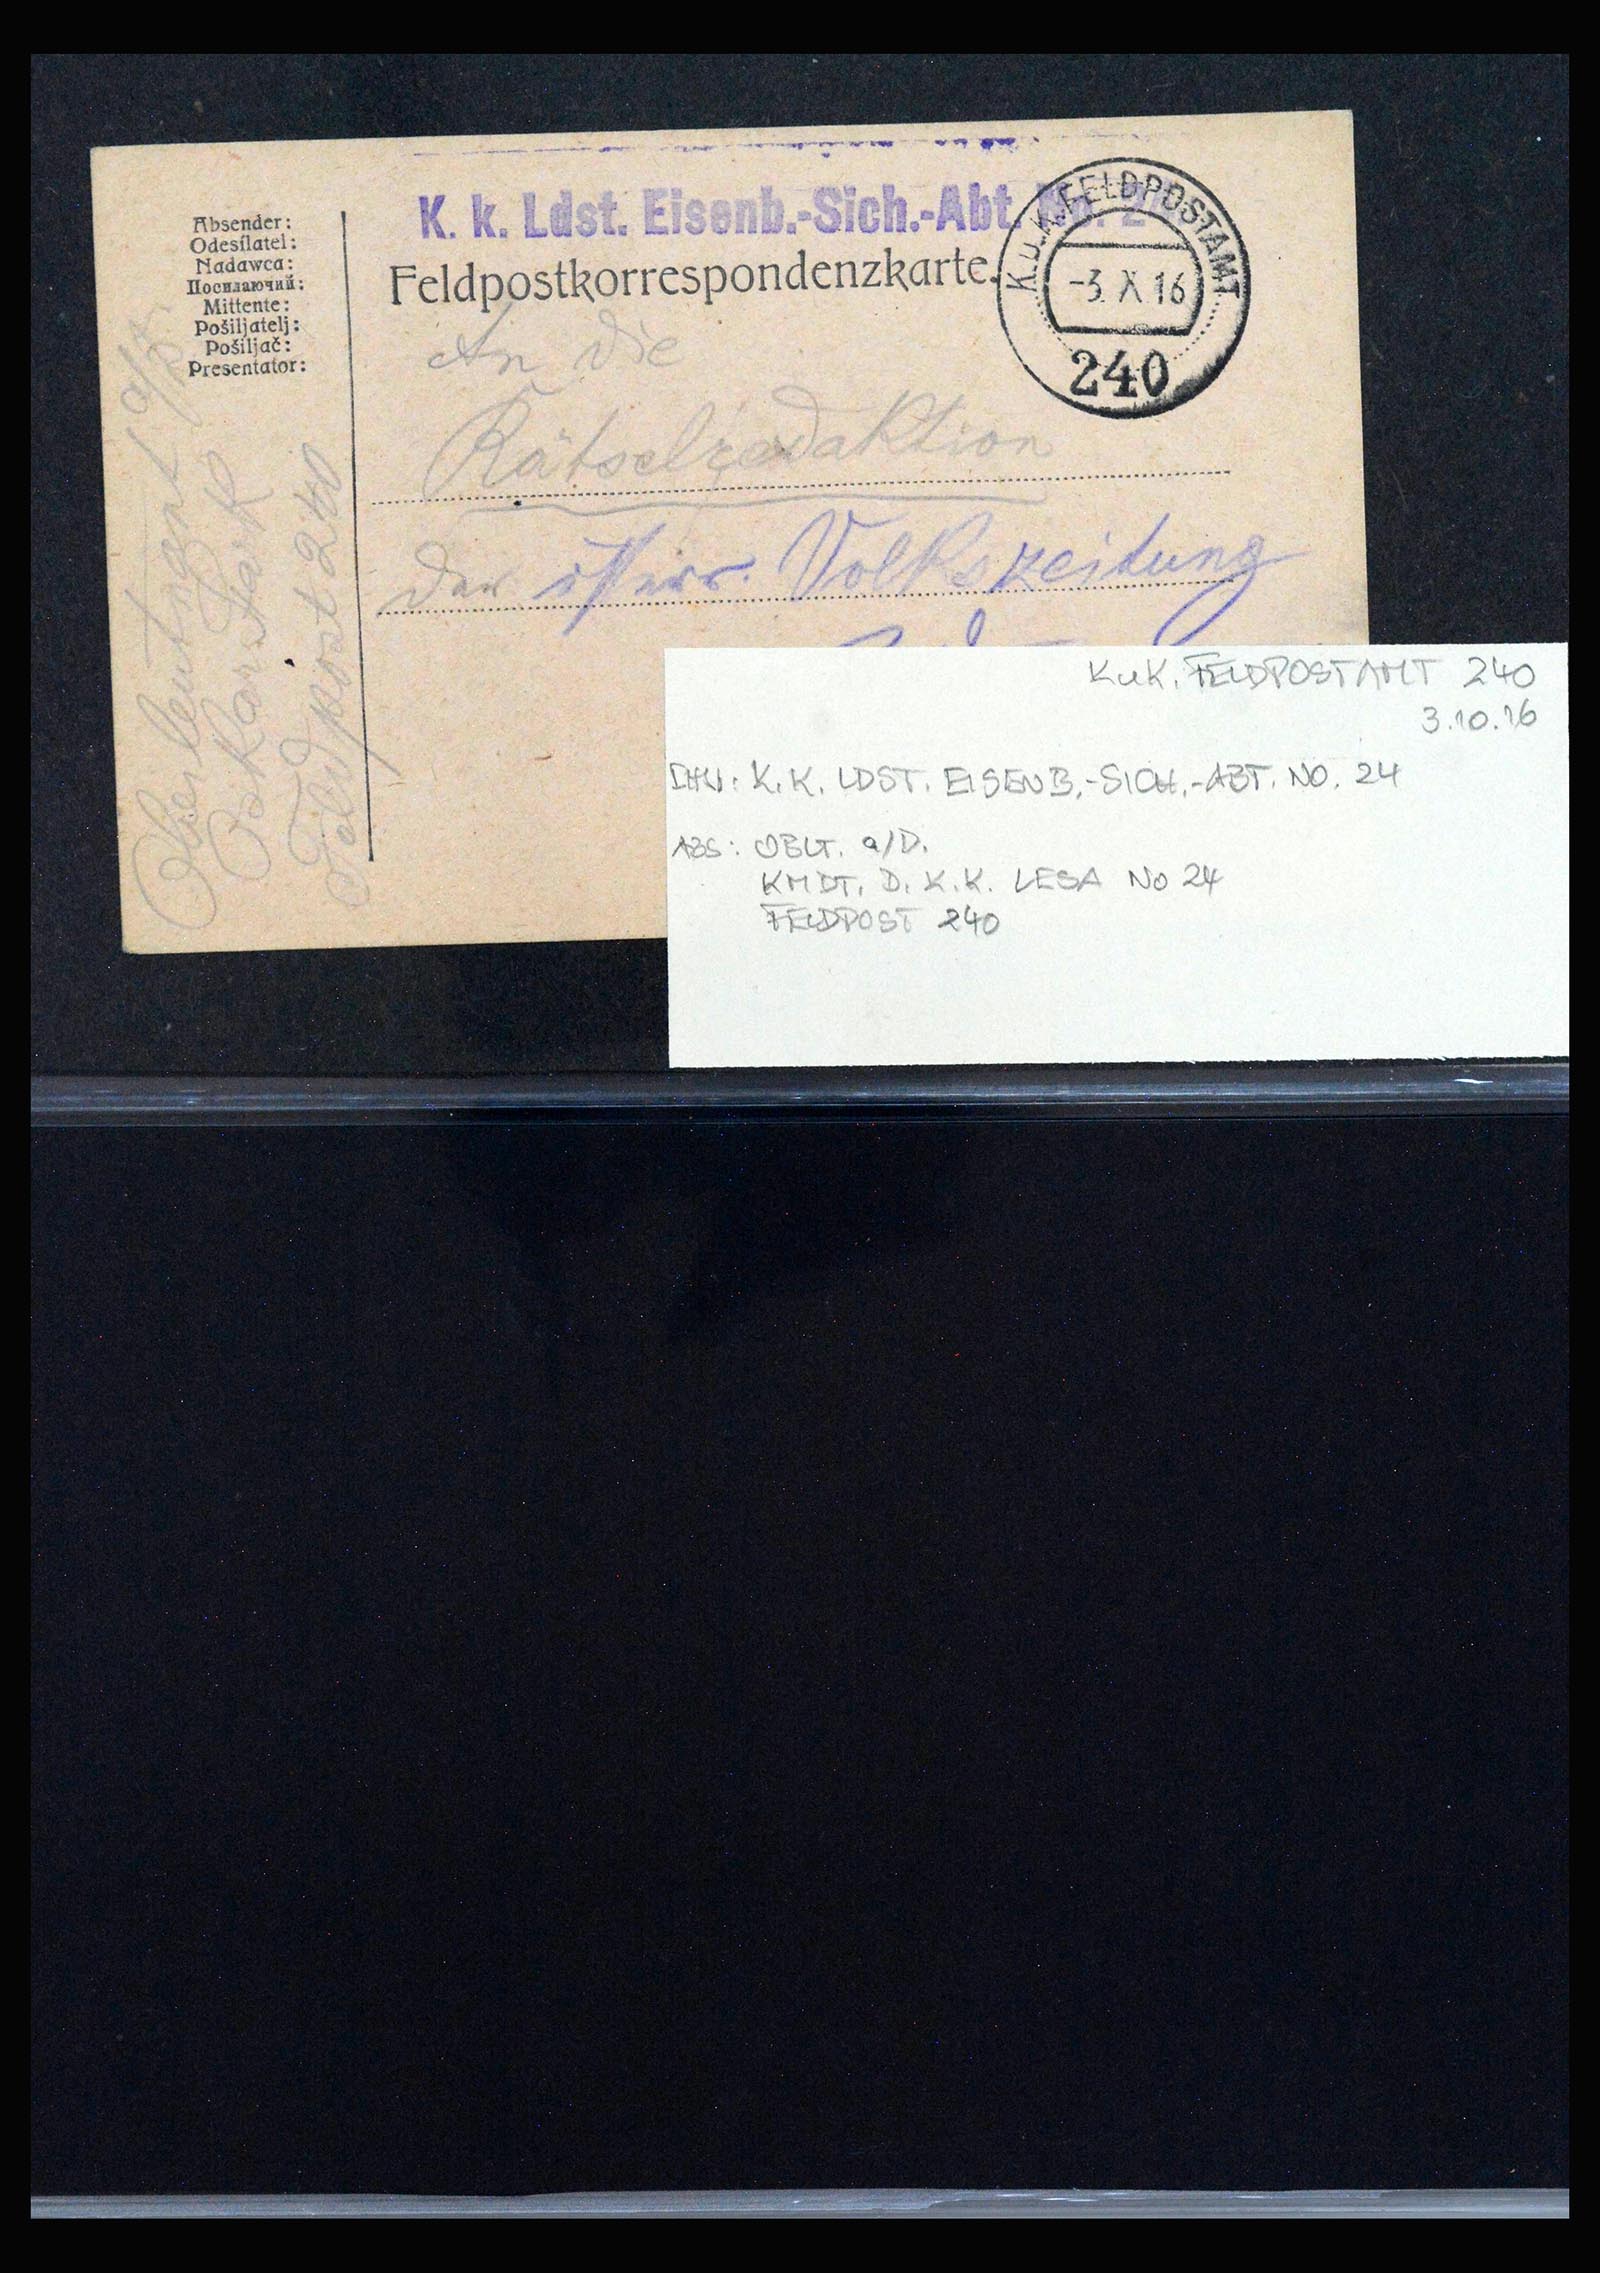 K. k. Ldst. Eisenb.-Sich.-Abt. No. 24
Feldpostkorrespondenzkarte.
K.u.K. FELDPOSTAMT
-3. X 16
240
Absender:
Odesílatel:
Nadawca:
Посилаючий:
Mittente:
Pošiljatelj:
Pošiljač:
Presentator:
Oberleutnant a/D.
Oskar Stark
Feldpost 240
An die
Rätselredaktion
der österr. Volkszeitung
K.u.K. FELDPOSTAMT 240
3.10.16
K.K. LDST. EISENB.-SICH.-ABT. NO. 24
ABS: OBLT. a/D.
KMDT. D. K.K. LESA No 24
FELDPOST 240